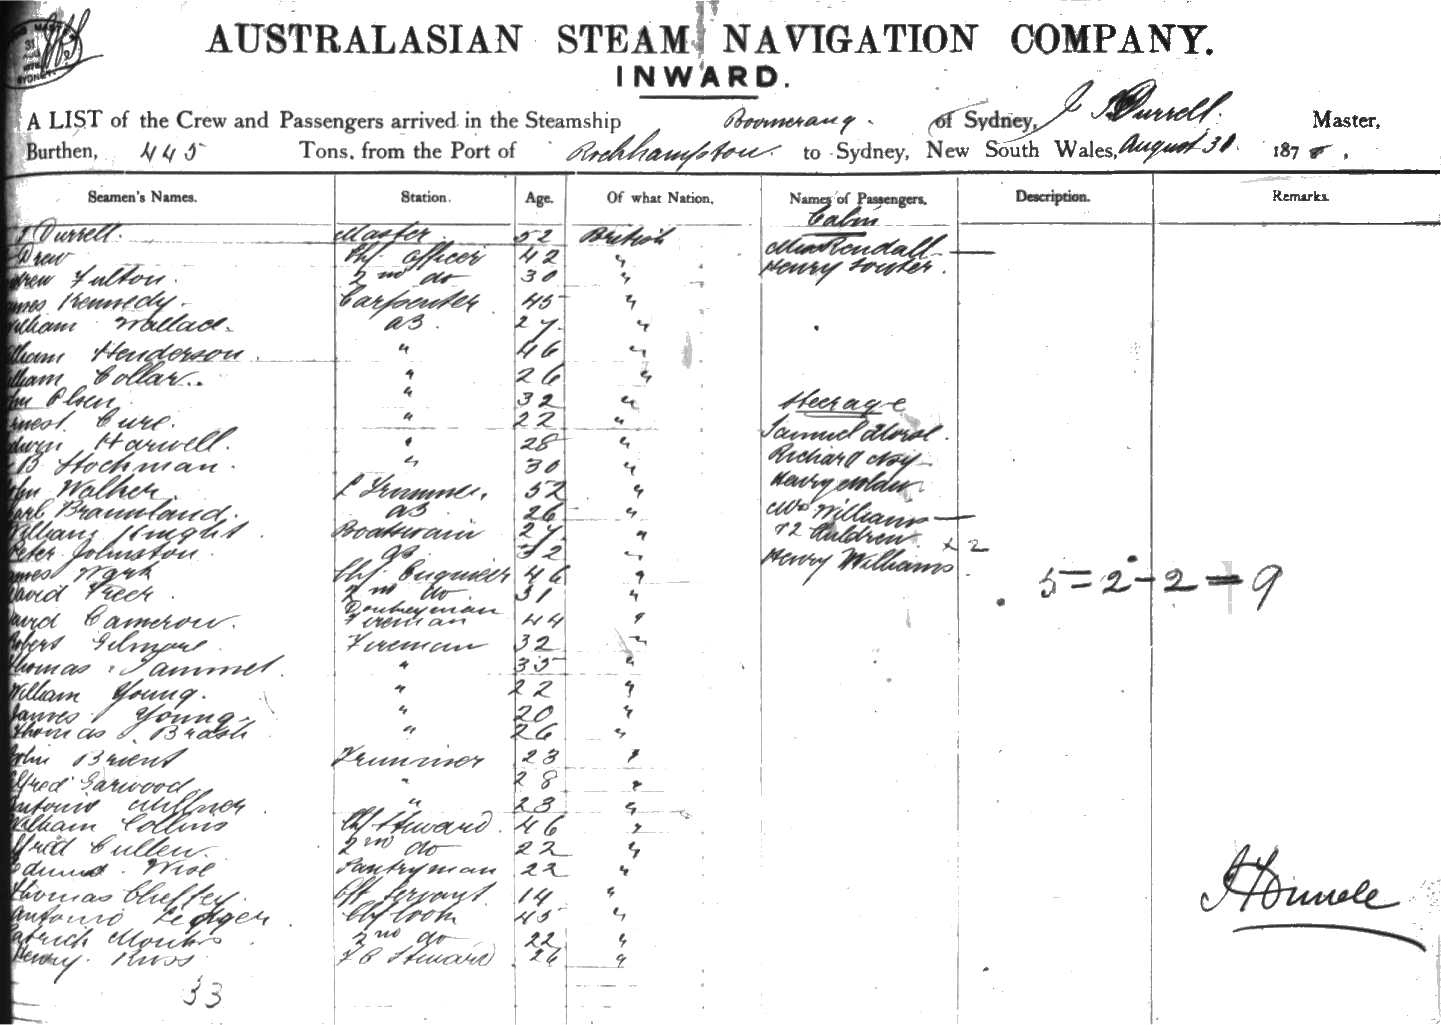 AUSTRALASIAN STEAM NAVIGATION COMPANY.
INWARD.
A LIST of the Crew and Passengers arrived in the Steamship Boomerang. of Sydney, J Durrell. Master,
Burthen, 445 Tons, from the Port of Rockhampton. to Sydney, New South Wales, August 31. 1878.
Seamen's Names. Station. Age. Of what Nation. Names of Passengers. Description. Remarks.
Cabin
Durrell. Master. 52 British
Drew Chf Officer 42 " Miss Kendall —
Fulton. 2nd do 30 " Henry
James Kennedy. Carpenter 45 "
William Wallace. AB. 27. "
William Henderson. " 46 "
William Collar. " 26 "
John Olsen. " 32 " Steerage
Ernest Cure. " 22 "
Edwin Harwell. " 28 " Samuel
B Stockman. " 30 " Richard
John Walker. Trimmer. 52 " Henry
Carl AB 26 " Mrs Williams —
William Knight. Boatswain 27. " & 2 Children. + 2
Peter Johnston. 32 " Henry Williams.
James Wark Chf Engineer 46 " 5 = 2 - 2 = 9
David Freer. 2nd do. 31 "
David Cameron. Donkeyman Fireman 44 "
Robert Gilmore. Fireman 32 "
Thomas Sammel. " 35 "
William Young. " 22 "
James Young. " 20 "
Thomas Brash " 26 "
John Brient Trimmer 23 "
Alfred Garwood " 28 "
Antonio Millner " 23 "
William Collins Chf Steward. 46 "
Alfred Cullen. 2nd do 22 "
Edmund Wise Pantryman 22 "
Thomas Servant. 14 "
Antonio Chf Cook 45 "
Patrick 2nd do 22 "
Henry Russ F C Steward 26 "
33